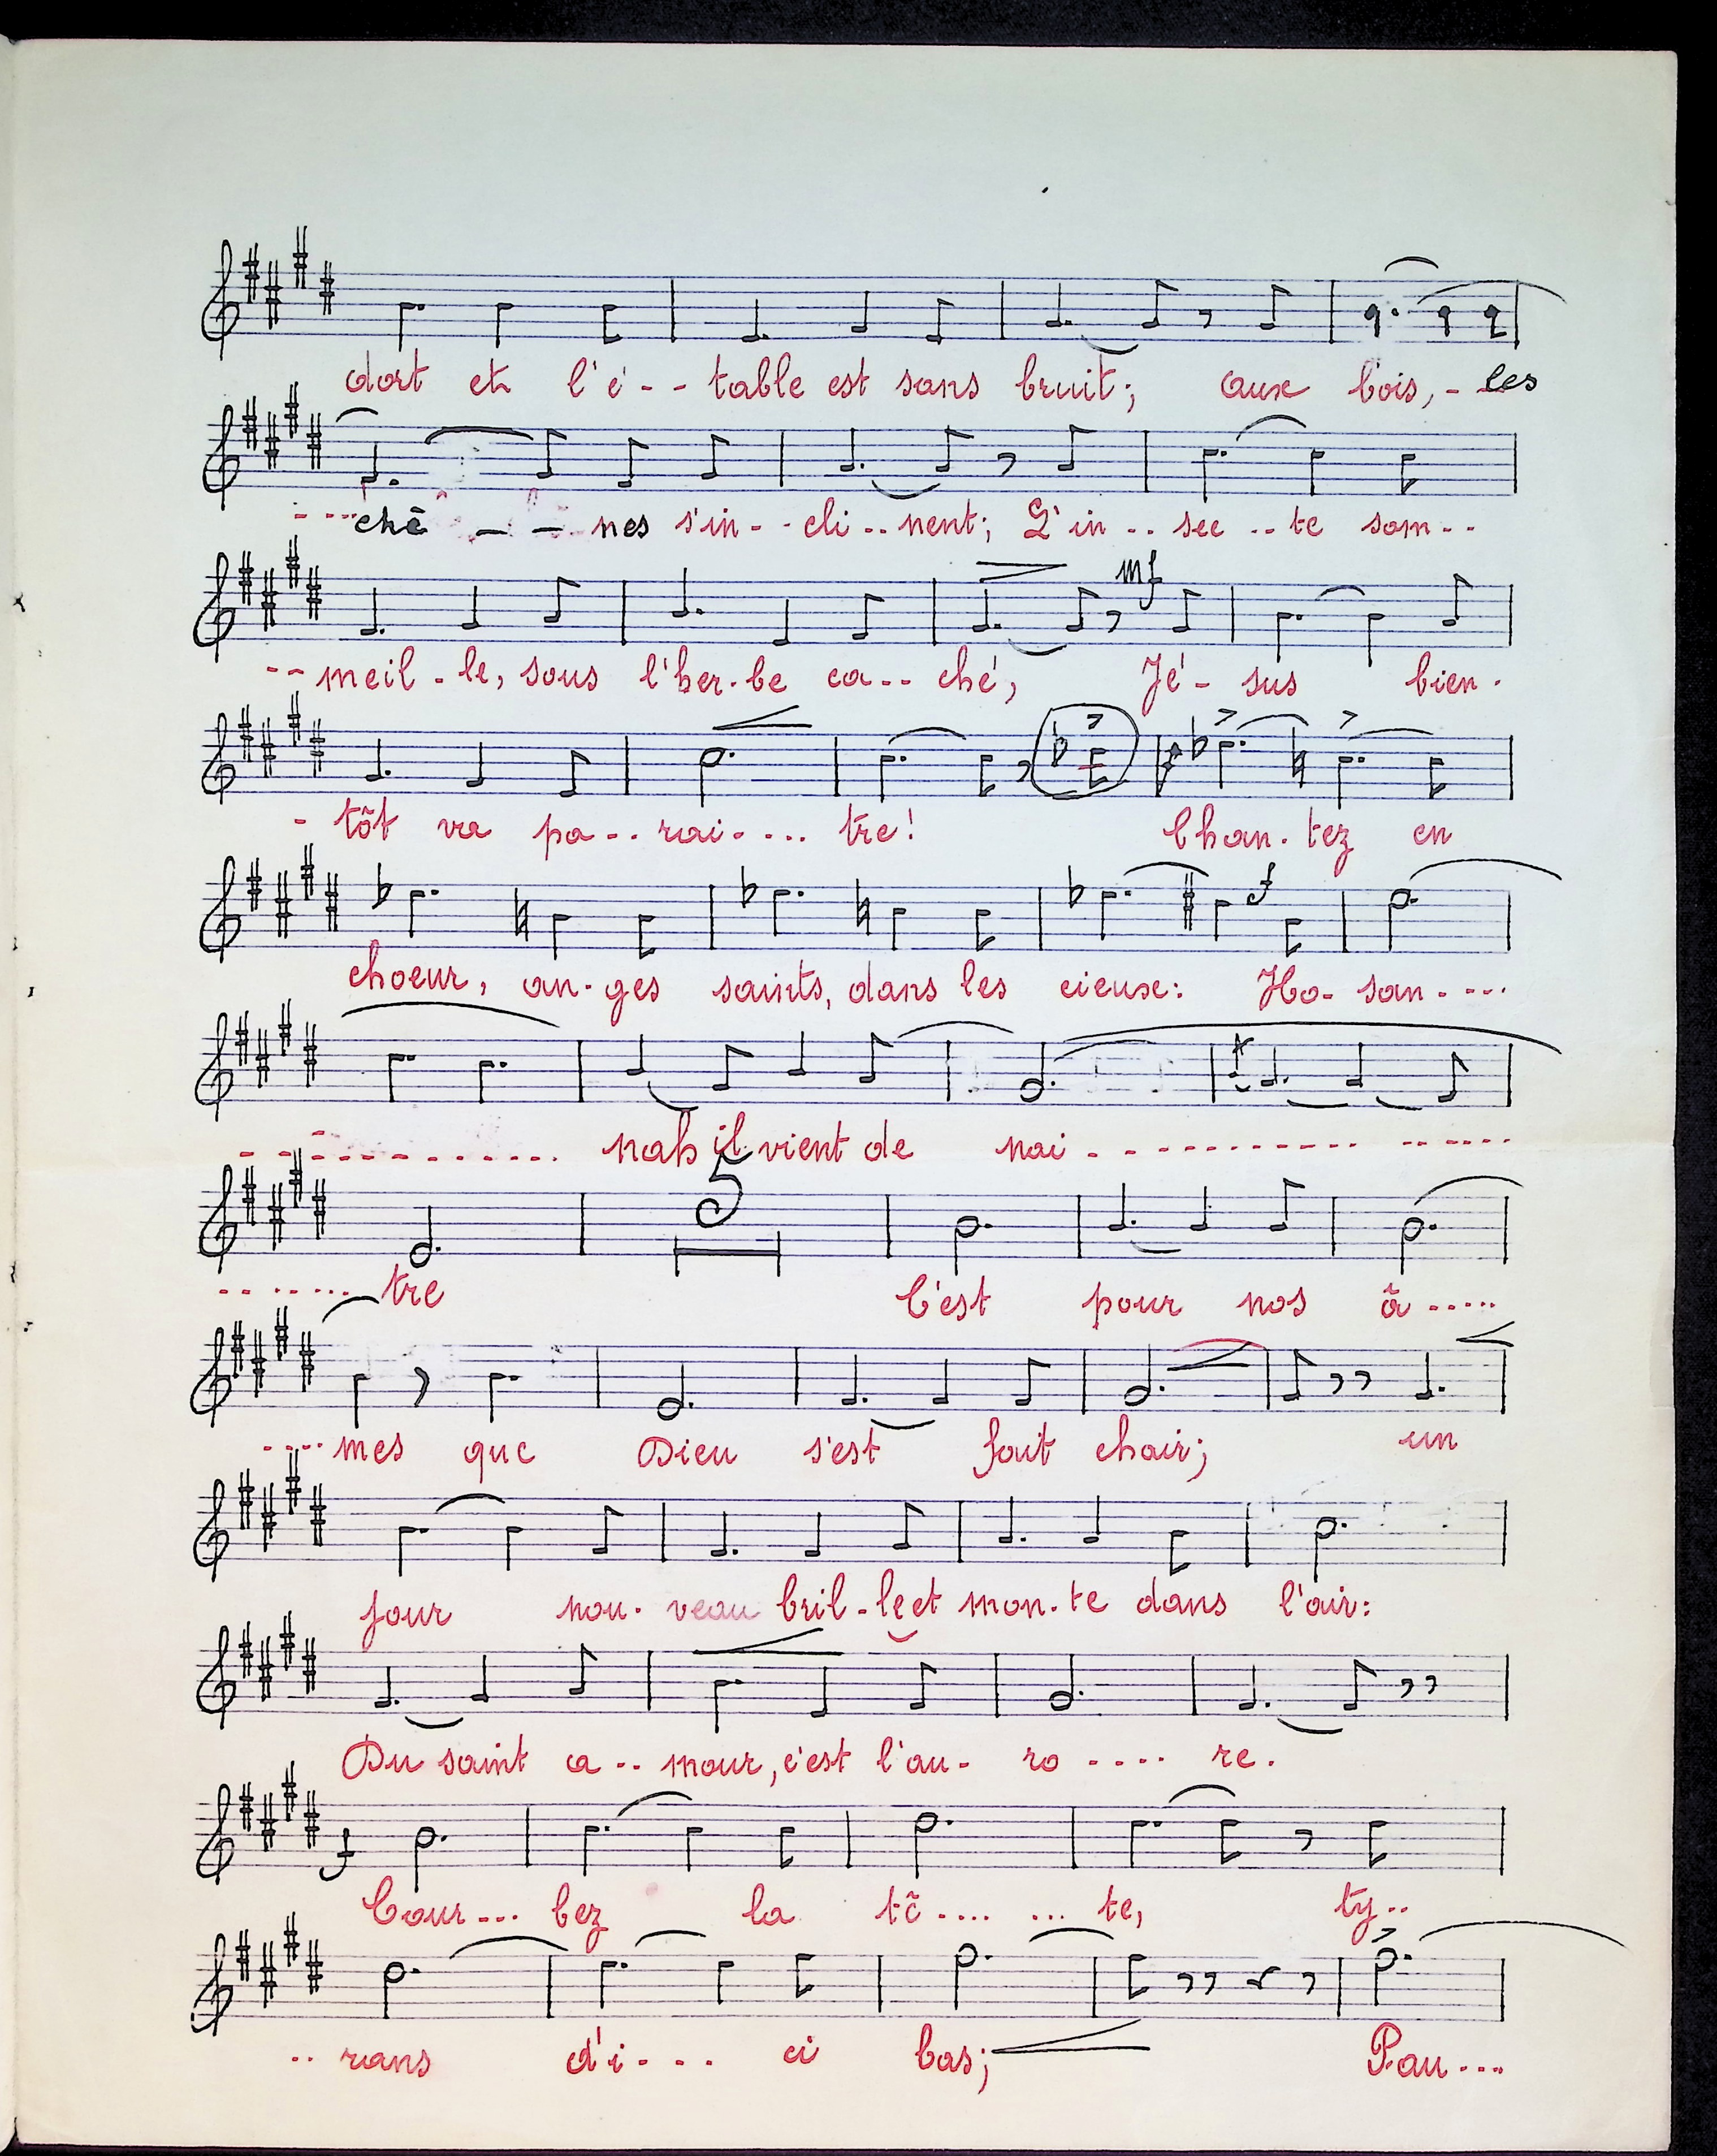 dort et l'é - - table est sans bruit; aux bois, - les
- - - - chê - - nes s'in - - cli - - nent; L'in - - sec - - te som - -
mf
- - meil - le, sous l'her - be ca - - ché, Jé - sus bien -
- tôt va pa - - rai - - - - tre! Chan - tez en
f
choeur, an - ges saints, dans les cieux: Ho - san - - - -
- - - - - - - - - - - nah il vient de nai - - - - - - - - - - - - - - - - -
5
- - - - - - - tre C'est pour nos â - - - - -
- - - - mes que Dieu s'est fait chair; un
jour nou - veau bril - le et mon - te dans l'air:
Du saint a - - mour, c'est l'au - ro - - - - re.
f
Cour - - - bez la tê - - - - - - - te, ty - -
- - rans d'i - - - - ci bas; Pau - - -